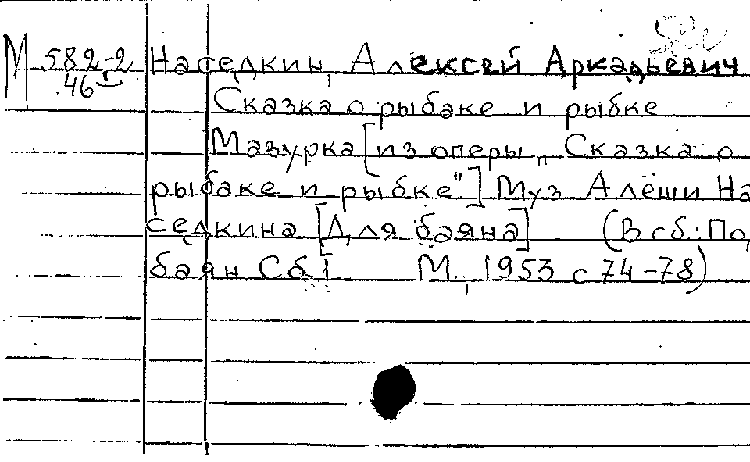 М 582-2 Наседкин, Алексей Аркадьевич
46
Сказка о рыбаке и рыбке
Мазурка [из оперы „Сказка о
рыбаке и рыбке"] Муз Алеши На
седкина [Для баяна] (В сб.: По
баян Сб 1 М., 1953 с 74-78)